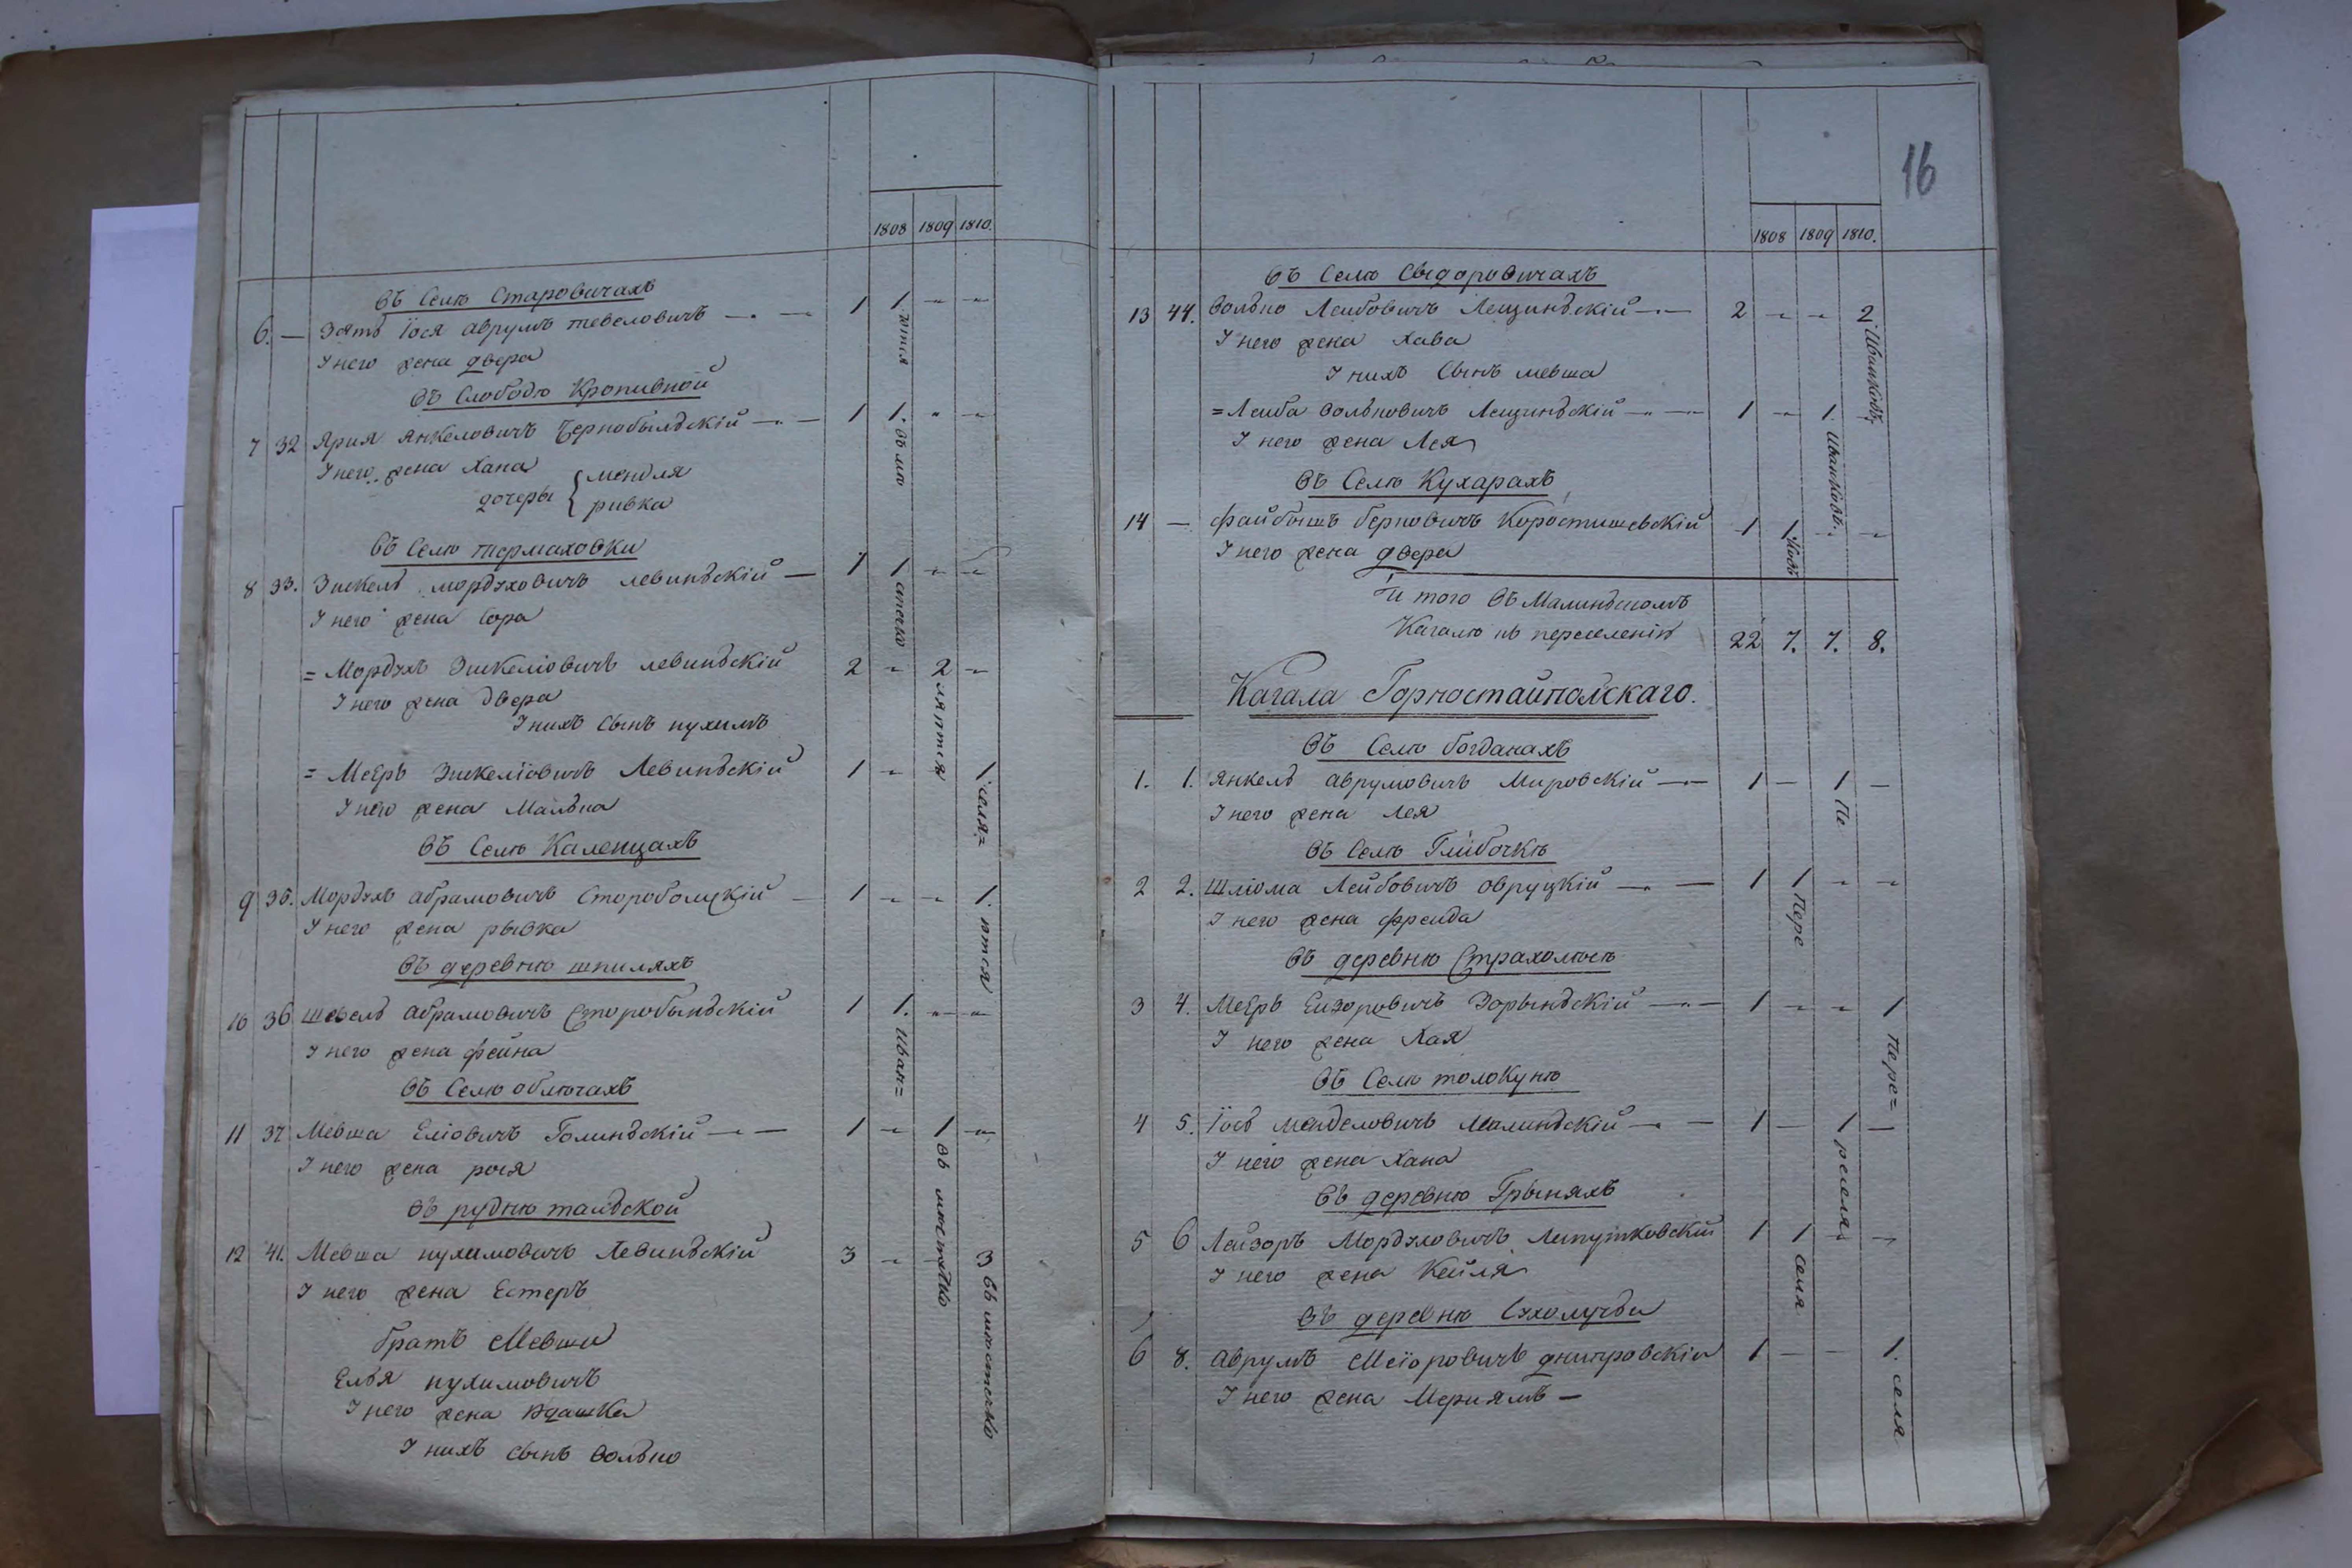 1808 1809 1810.
въ селѣ Старовичахъ
6. — Зять Іося Аврумъ Тевеловичъ — — 1 1. - -
У него жена Двера
въ Слободѣ Кропивной
7 32 Ярия Янкеловичъ Чернобылський — — 1 1. - -
У него жена Хана
дочеры { Мендля
ривка
въ селѣ термаховки
8 33. Эшкель Мордуховичъ Левинський — 1 1 - -
У него жена Сора
= Мордухъ Эшкеліовичъ Левинський 2 - 2 -
У него жена Двера
У нихъ сынъ нухимъ
= Меѣръ Эшкеліовичъ Левинський 1 - 1.
У него жена Мальна
въ селѣ Каленцахъ
9 35. Мордухъ Абрамовичъ Сторобоцкій 1 - - 1.
У него жена рывка
въ деревнѣ шпиляхъ
10 36 шевель Абрамовичъ Сторобынський 1 1. - -
У него жена фейна
въ селѣ облючахъ
11 37 Мевша Еліовичъ Голинський — — 1 - 1 -
У него жена рося
въ рудни тальской
12 41. Мевша нухимовичъ Левинський 3 - - 3
У него жена Естеръ
братъ Мевши
Елья нухимовичъ
У него жена Ядашка
У нихъ сынъ вольно
ются
въ мѣ
стечко
ляются
селя=
ются
иван=
въ мѣстечко
въ мѣстечко
16
1808 1809 1810.
въ селѣ Сыдоровичахъ
13 44. Вольно Лейбовичъ Лещинський — 2 - - 2.
У него жена Хава
У нихъ сынъ мевша
= Лейба Вольновичъ Лещинський — 1 - 1. -
У него жена Лея
въ селѣ Кухарахъ
14 — Файбышъ берковичъ Коростишевскій 1 1 - -
У него жена двера
И того въ Малинськомъ
Кагалѣ къ переселенію 22 7. 7. 8.
Ивановъ.
Ивановъ.
Кагала Горностайпольскаго.
въ селѣ богданахъ
1. 1. Янкель Аврумовичъ Мировскій — 1 — 1 —
У него жена Лея
въ селѣ Глибочкѣ
2 2. Шліома Лейбовичъ Овруцкій — 1 1 - -
У него жена Фрейда
въ деревнѣ Страхолюсѣ
3 4. Меѣръ Ейзоровичъ Зорынський — 1 - - 1
У него жена Хая
въ селѣ толокунѣ
4 5. Іось менделовичъ Малинський — 1 — 1 —
У него жена Хана
въ деревнѣ Грыняхъ
5 6 Лейзоръ Мордуховичъ Липутковскій 1 1 - -
У него жена Кейля
въ деревнѣ Сухолучьи
6 8. Аврумъ Меіоровичъ Днипровскій 1 — — 1.
У него жена Мериямъ —
Пе
Пере
Пере=
реселя
селя
селя